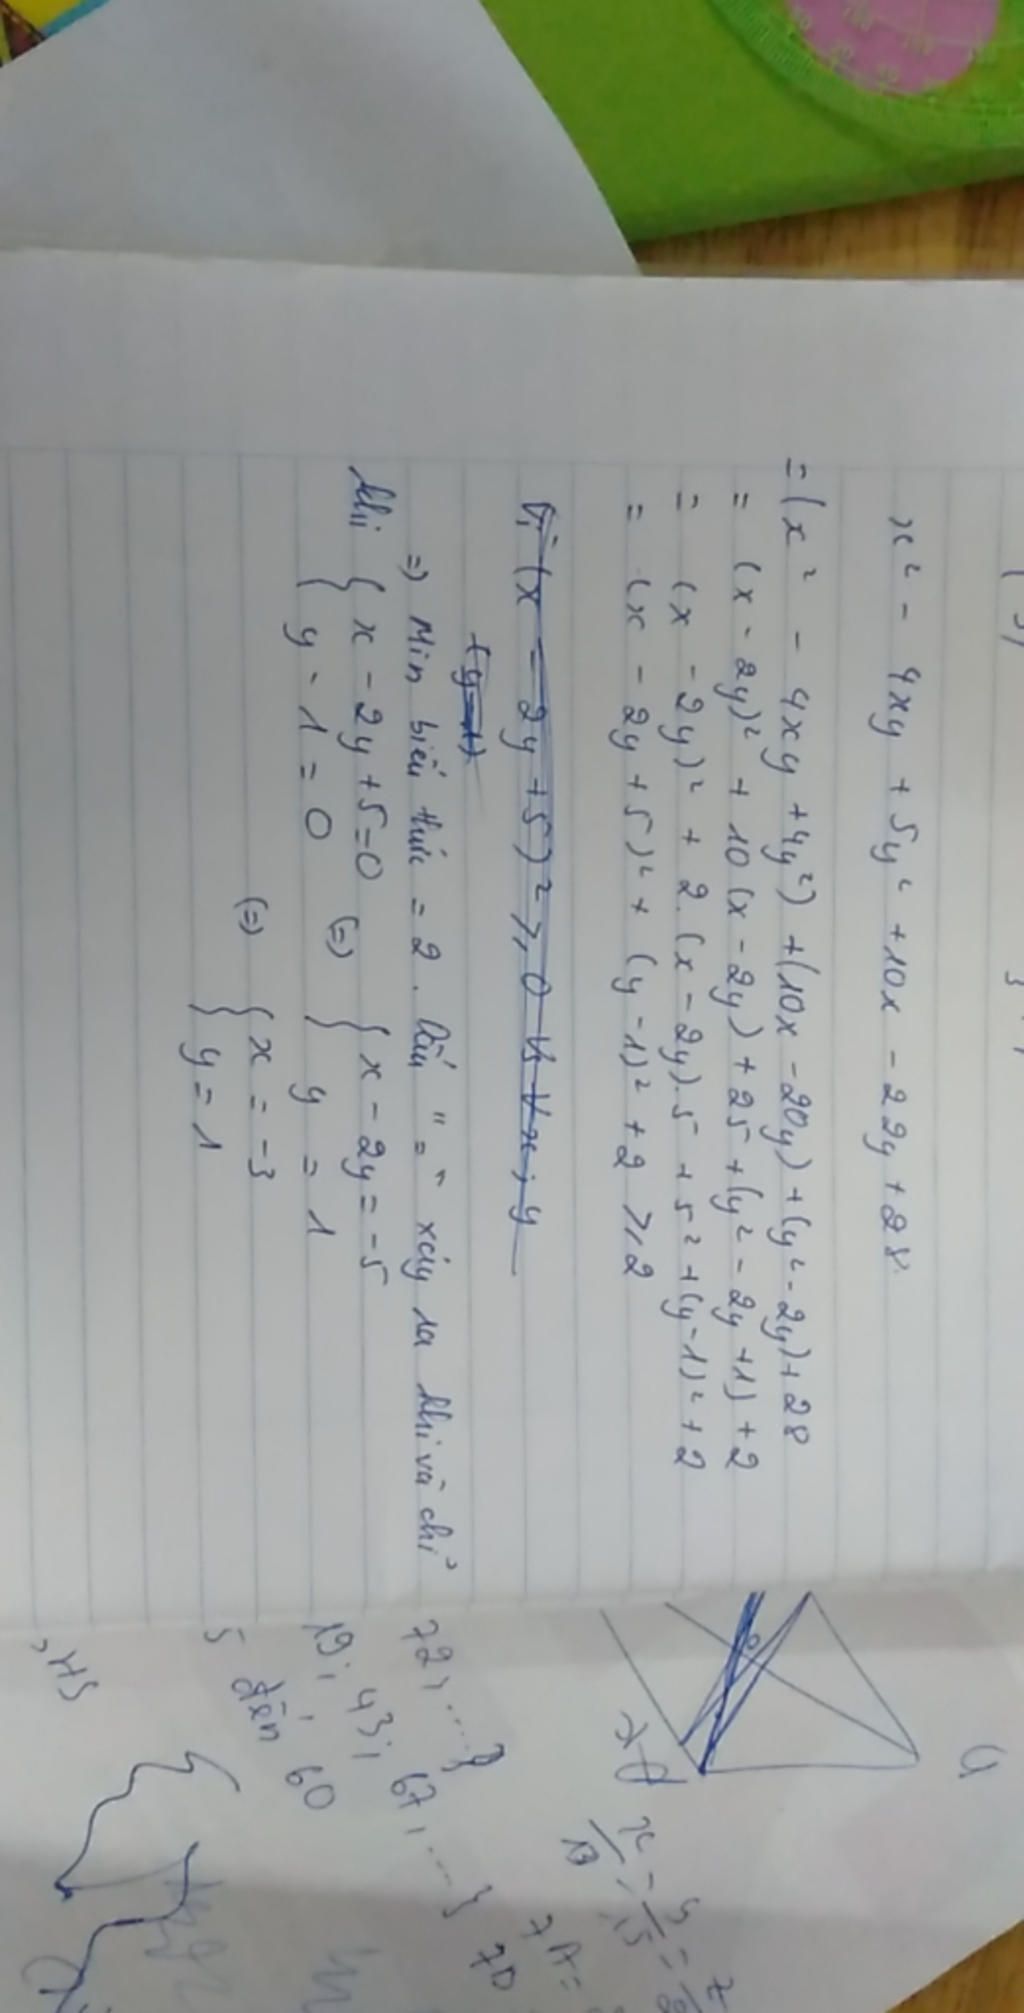 x² - 4xy + 5y² + 10x - 22y + 28
= (x² - 4xy + 4y²) + (10x - 20y) + (y² - 2y) + 28
= (x - 2y)² + 10(x - 2y) + 25 + (y² - 2y + 1) + 2
= (x - 2y)² + 2.(x - 2y).5 + 5² + (y - 1)² + 2
= (x - 2y + 5)² + (y - 1)² + 2 ≥ 2
Vì (x - 2y + 5)² ≥ 0 với ∀ x; y
(y - 1)
=> Min biểu thức = 2. Dấu "=" xảy ra khi và chỉ
khi { x - 2y + 5 = 0 (=) { x - 2y = -5
{ y - 1 = 0 { y = 1
(=) { x = -3
{ y = 1
72; ....}
19; 43; 67; ....}
5 đến 60